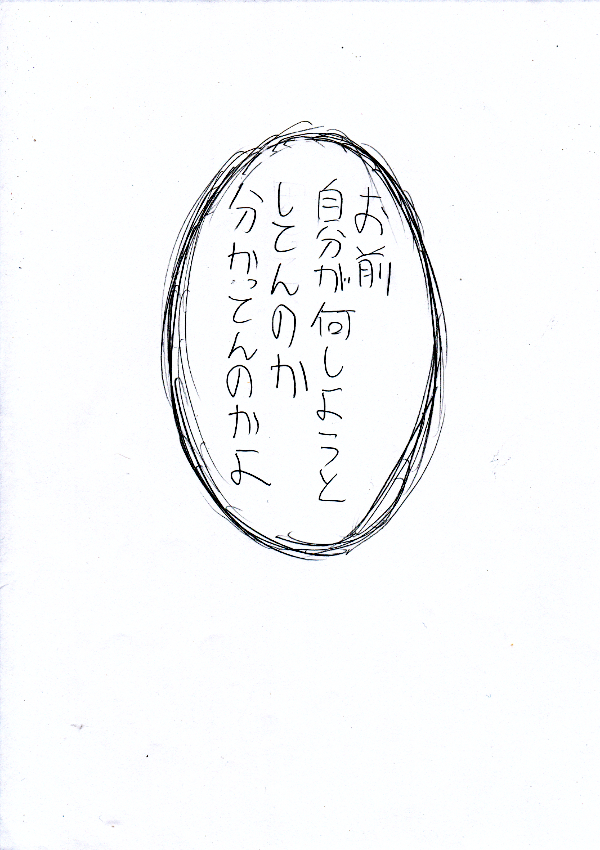 お前
自分が何しようと
してんのか
分かってんのかよ